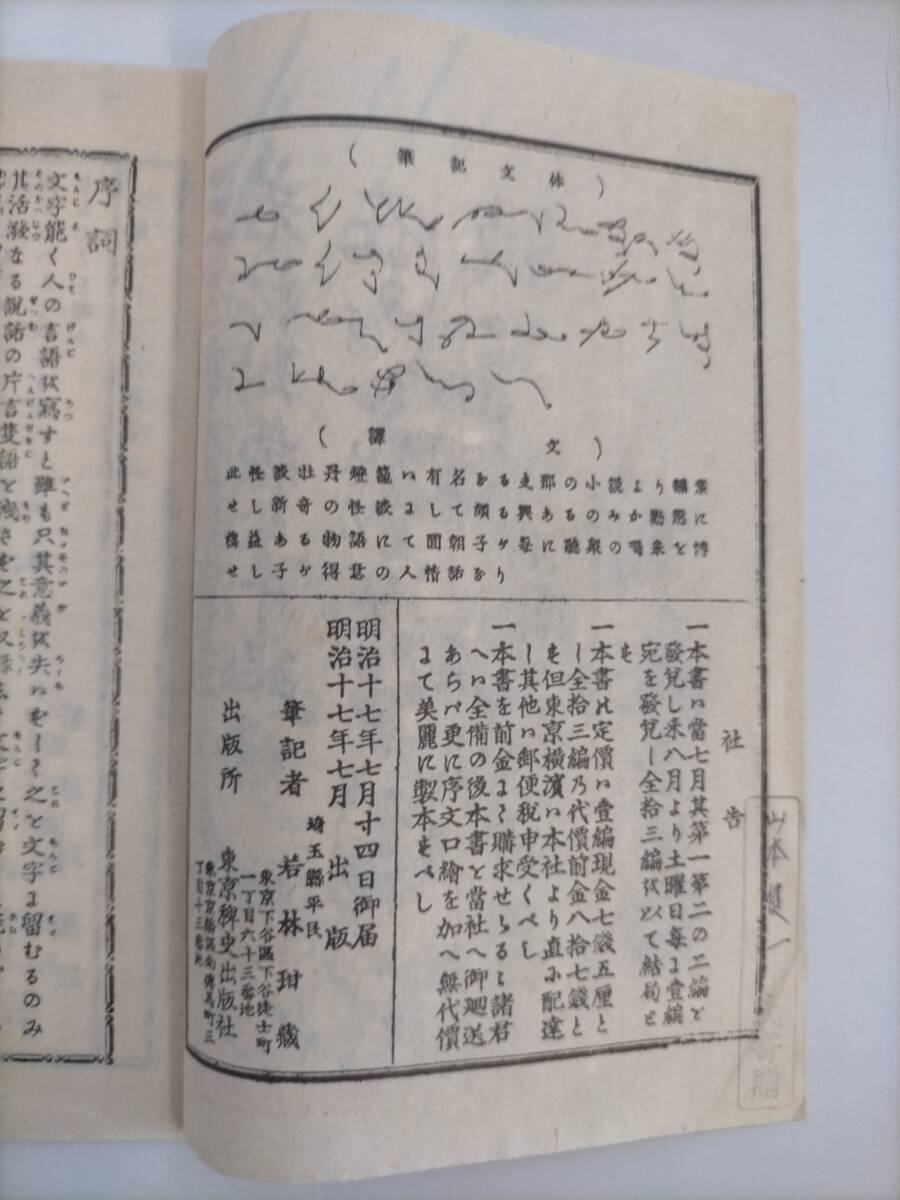 (筆記文体)
(譯文)
此怪談牡丹燈籠ハ有名なる支那の小説より飜案
せし新奇の怪談にして頗る興あるのみか勸懲に
裨益ある物語にて圓朝子が毎に聴衆の喝采を博
せし子が得意の人情話なり
社告
一本書ハ當七月其第一第二の二編を
發兌し来八月より土曜日毎に壹編
宛を發兌し全拾三編を以て結局と
す
一本書の定價ハ壹編現金七錢五厘と
し全拾三編乃代價前金八拾七錢と
す但東京横濱ハ本社より直に配達
し其他ハ郵便税申受くべし
一本書を前金にて購求せらるゝ諸君
へハ全備の後本書を當社へ御廻送
あらバ更に序文口繪を加へ無代價
にて美麗に製本すべし
明治十七年七月十四日御届
明治十七年七月出版
埼玉縣平民
筆記者 若林玵藏
東京下谷區下谷徒士町
一丁目六十三番地
出版所 東京稗史出版社
東京京橋區南傳馬町三
丁目十三番地
山本 一 贈
序詞
文字能く人の言語を寫すと雖も只其意義を失ハずして之を文字に留むるのみ
其活潑なる説話の片言隻語を洩さず之を